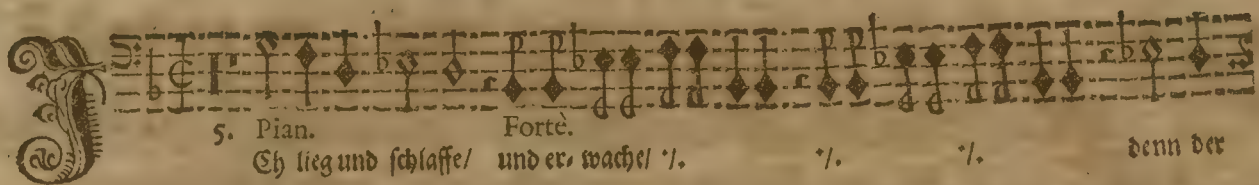 5. Pian. Fortè.
JCh lieg und schlaffe/ und er- wache/ ·/. ·/. ·/. denn der